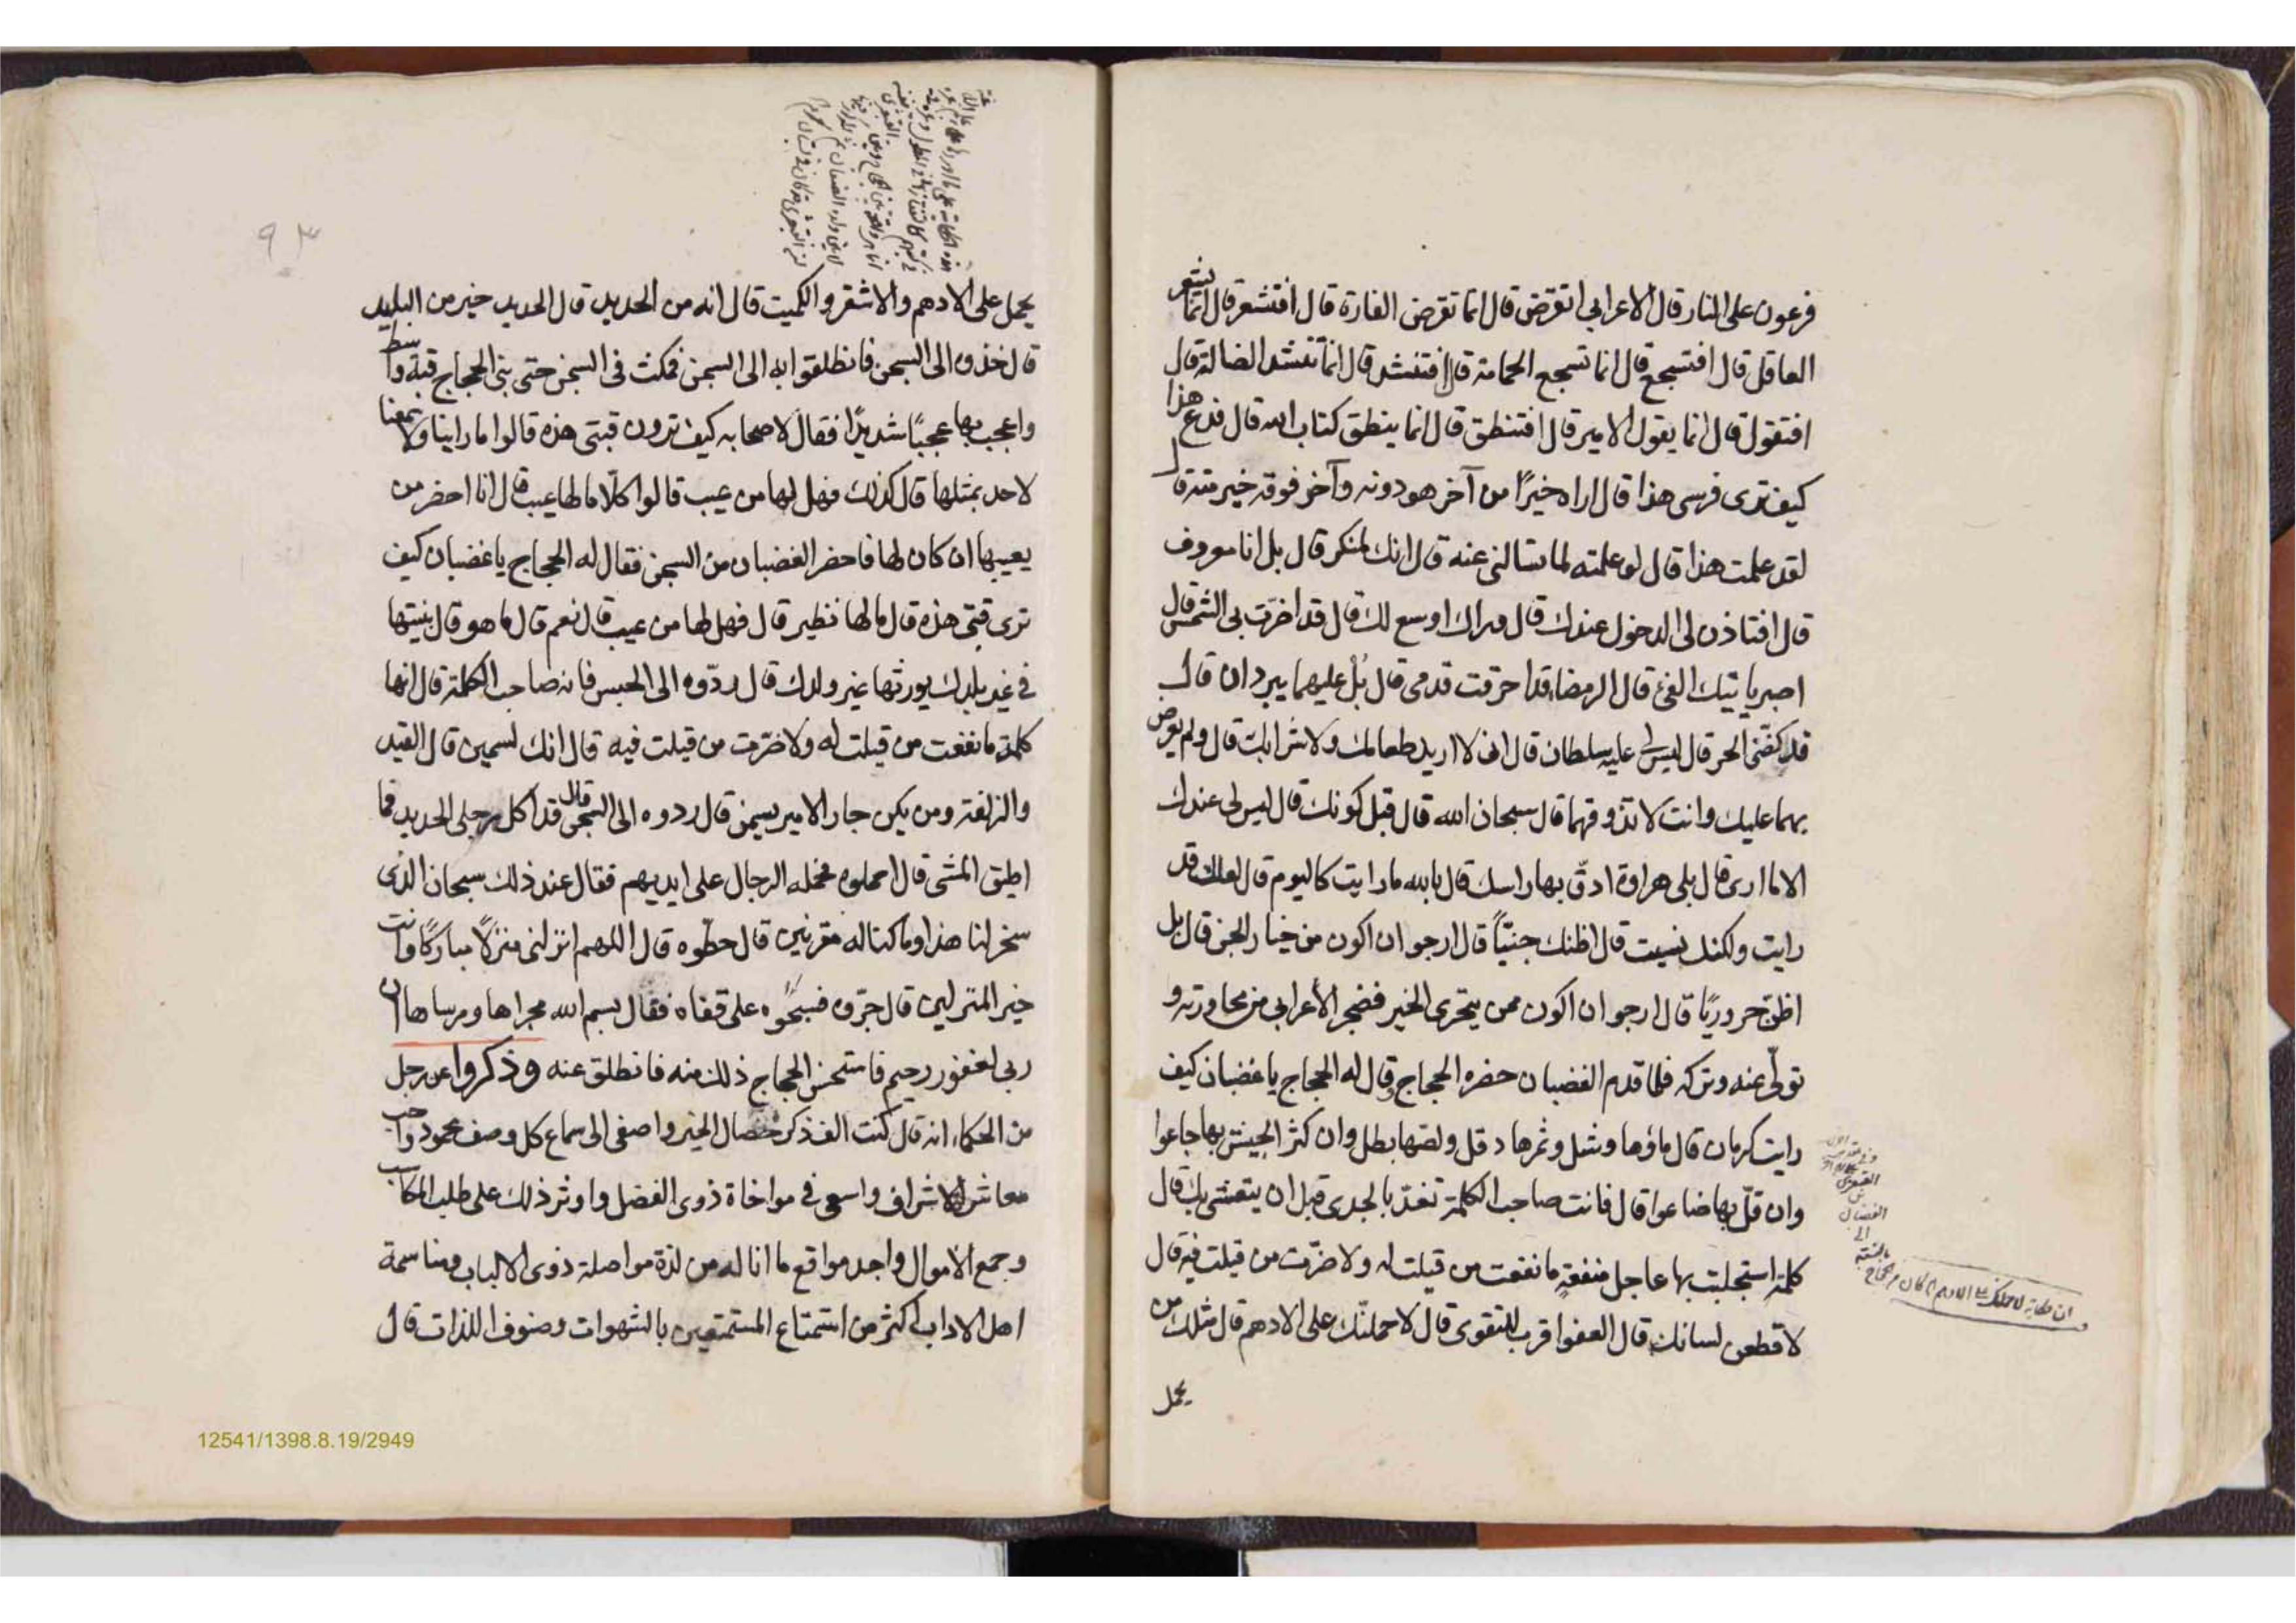 فرعون على النار قال الاعرابى اتقرض قال انما تقرض الفارة قال افتشعر قال انما يشعر
العاقل قال افتسجع قال انما تسجع الحمامة قال افتنشد قال انما تنشد الضالة قال
افتقول قال انما يقول الامير قال افتنطق قال انما ينطق كتاب الله قال فدع هذا
كيف ترى فرسى هذا قال اراه خيرًا من آخر هو دونه وآخر فوقه خير منه قال
لقد علمت هذا قال لو علمته لما تسالنى عنه قال انك لمنكر قال بل انا معروف
قال افتاذن لى الدخول عندك قال وراك اوسع لك قال قد اخرّت بى الشمس قال
اصبر ياتيك الفئ قال الرمضاء قد احرقت قدمى قال بُلْ عليهما يبردان قال
قد كضّنى الحر قال ليس لى عليه سلطان قال انى لا اريد طعامك ولا شرابك قال ولم يعرض
بهما عليك وانت لا تذوقهما قال سبحان الله قال قبل كونك قال ليس لى عندك
الا ما ارى قال بلى هراوة ادقّ بها راسك قال بالله ما رايت كاليوم قال لعلك قد
رايت ولكنك نسيت قال اظنك جنيّاً قال ارجو ان اكون من خيار الجن قال بل
اظنّ حروريًا قال ارجو ان اكون ممن يتحرى الخير فضجر الأعرابى من محاورته و
تولّى عنه وتركه فلما قدم الغضبان حضره الحجاج وقال له الحجاج يا غضبان كيف
رايت كرمان قال ماؤها وشل وثمرها دقل ولصّها بطل وان كثر الجيش بها جاعوا
وان قلّ بها ضاعوا قال فانت صاحب الكلمة تغدّ بالجدى قبل ان يتعشى بك قال
كلمة استجلبت بها عاجل منفعةٍ ما نفعت من قيلت له ولا ضرّت من قيلت فيه قال
لاقطعن لسانك قال العفو اقرب للتقوى قال لاحملنّك على الادهم قال مثلك من
يحمل
القبعثرى
الغضبان
الى
٩٣
يحمل على الادهم والاشقر والكميت قال انه من الحديد قال الحديد خير من البليد
قال خذوه الى السجن فانطلقوا به الى السجن فمكث فى السجن حتى بنى الحجاج قبة واسط
واعجب بها عجبًا شديدًا فقال لاصحابه كيف ترون قبتى هذه قالوا ما راينا ولا سمعنا
لاحد بمثلها قال كذلك فهل لها من عيب قالوا كلّا ما لها عيب قال انا احضر من
يعيبها ان كان لها فاحضر الغضبان من السجن فقال له الحجاج يا غضبان كيف
ترى قبتى هذه قال ما لها نظير قال فهل لها من عيب قال نعم قال ما هو قال بنيتها
فى غير بلدك يورثها غير ولدك قال ردّوه الى الحبس فانه صاحب الكلمة قال انها
كلمة ما نفعت من قيلت له ولا ضرّت من قيلت فيه قال انك لسمين قال القيد
والزلفة ومن يكن جار الامير يسمن قال ردوه الى السجن قال قد اكل رجلى الحديد فما
اطيق المشى قال احملوه فحمله الرجال على ايديهم فقال عند ذلك سبحان الذى
سخر لنا هذا وما كنا له مقرنين قال حطّوه قال اللهم انزلنى منزلًا مباركًا وانت
خير المنزلين قال جرّوه فسبحُوه على قفاه فقال بسم الله مجراها ومرساها ان
ربى لغفور رحيم فاستحسن الحجاج ذلك منه فانطلق عنه وذكروا عن رجل
من الحكماء انه قال كنت الف ذكر خصال الخير واصغى الى سماع كل وصف محمود واحب
معاشر الاشراف واسعى فى مواخاة ذوى الفضل واوثر ذلك على طلب المكاسب
وجمع الأموال واجد مواقع ما انا له من لذة مواصلة ذوى الالباب ومناسمة
اهل الاداب اكثر من استمتاع المستمتعين بالشهوات وصنوف اللذات قال
12541/1398.8.19/2949